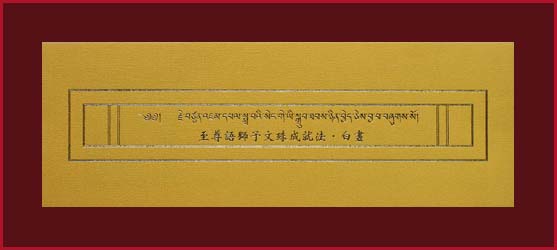 ༄༅། །རྗེ་བཙུན་འཇམ་དཔལ་སྨྲ་བའི་སེང་གེ་ཡི་སྒྲུབ་ཐབས་ཉིན་བྱེད་ཅེས་བྱ་བ་བཞུགས་སོ།
至尊語獅子文殊成就法·白晝